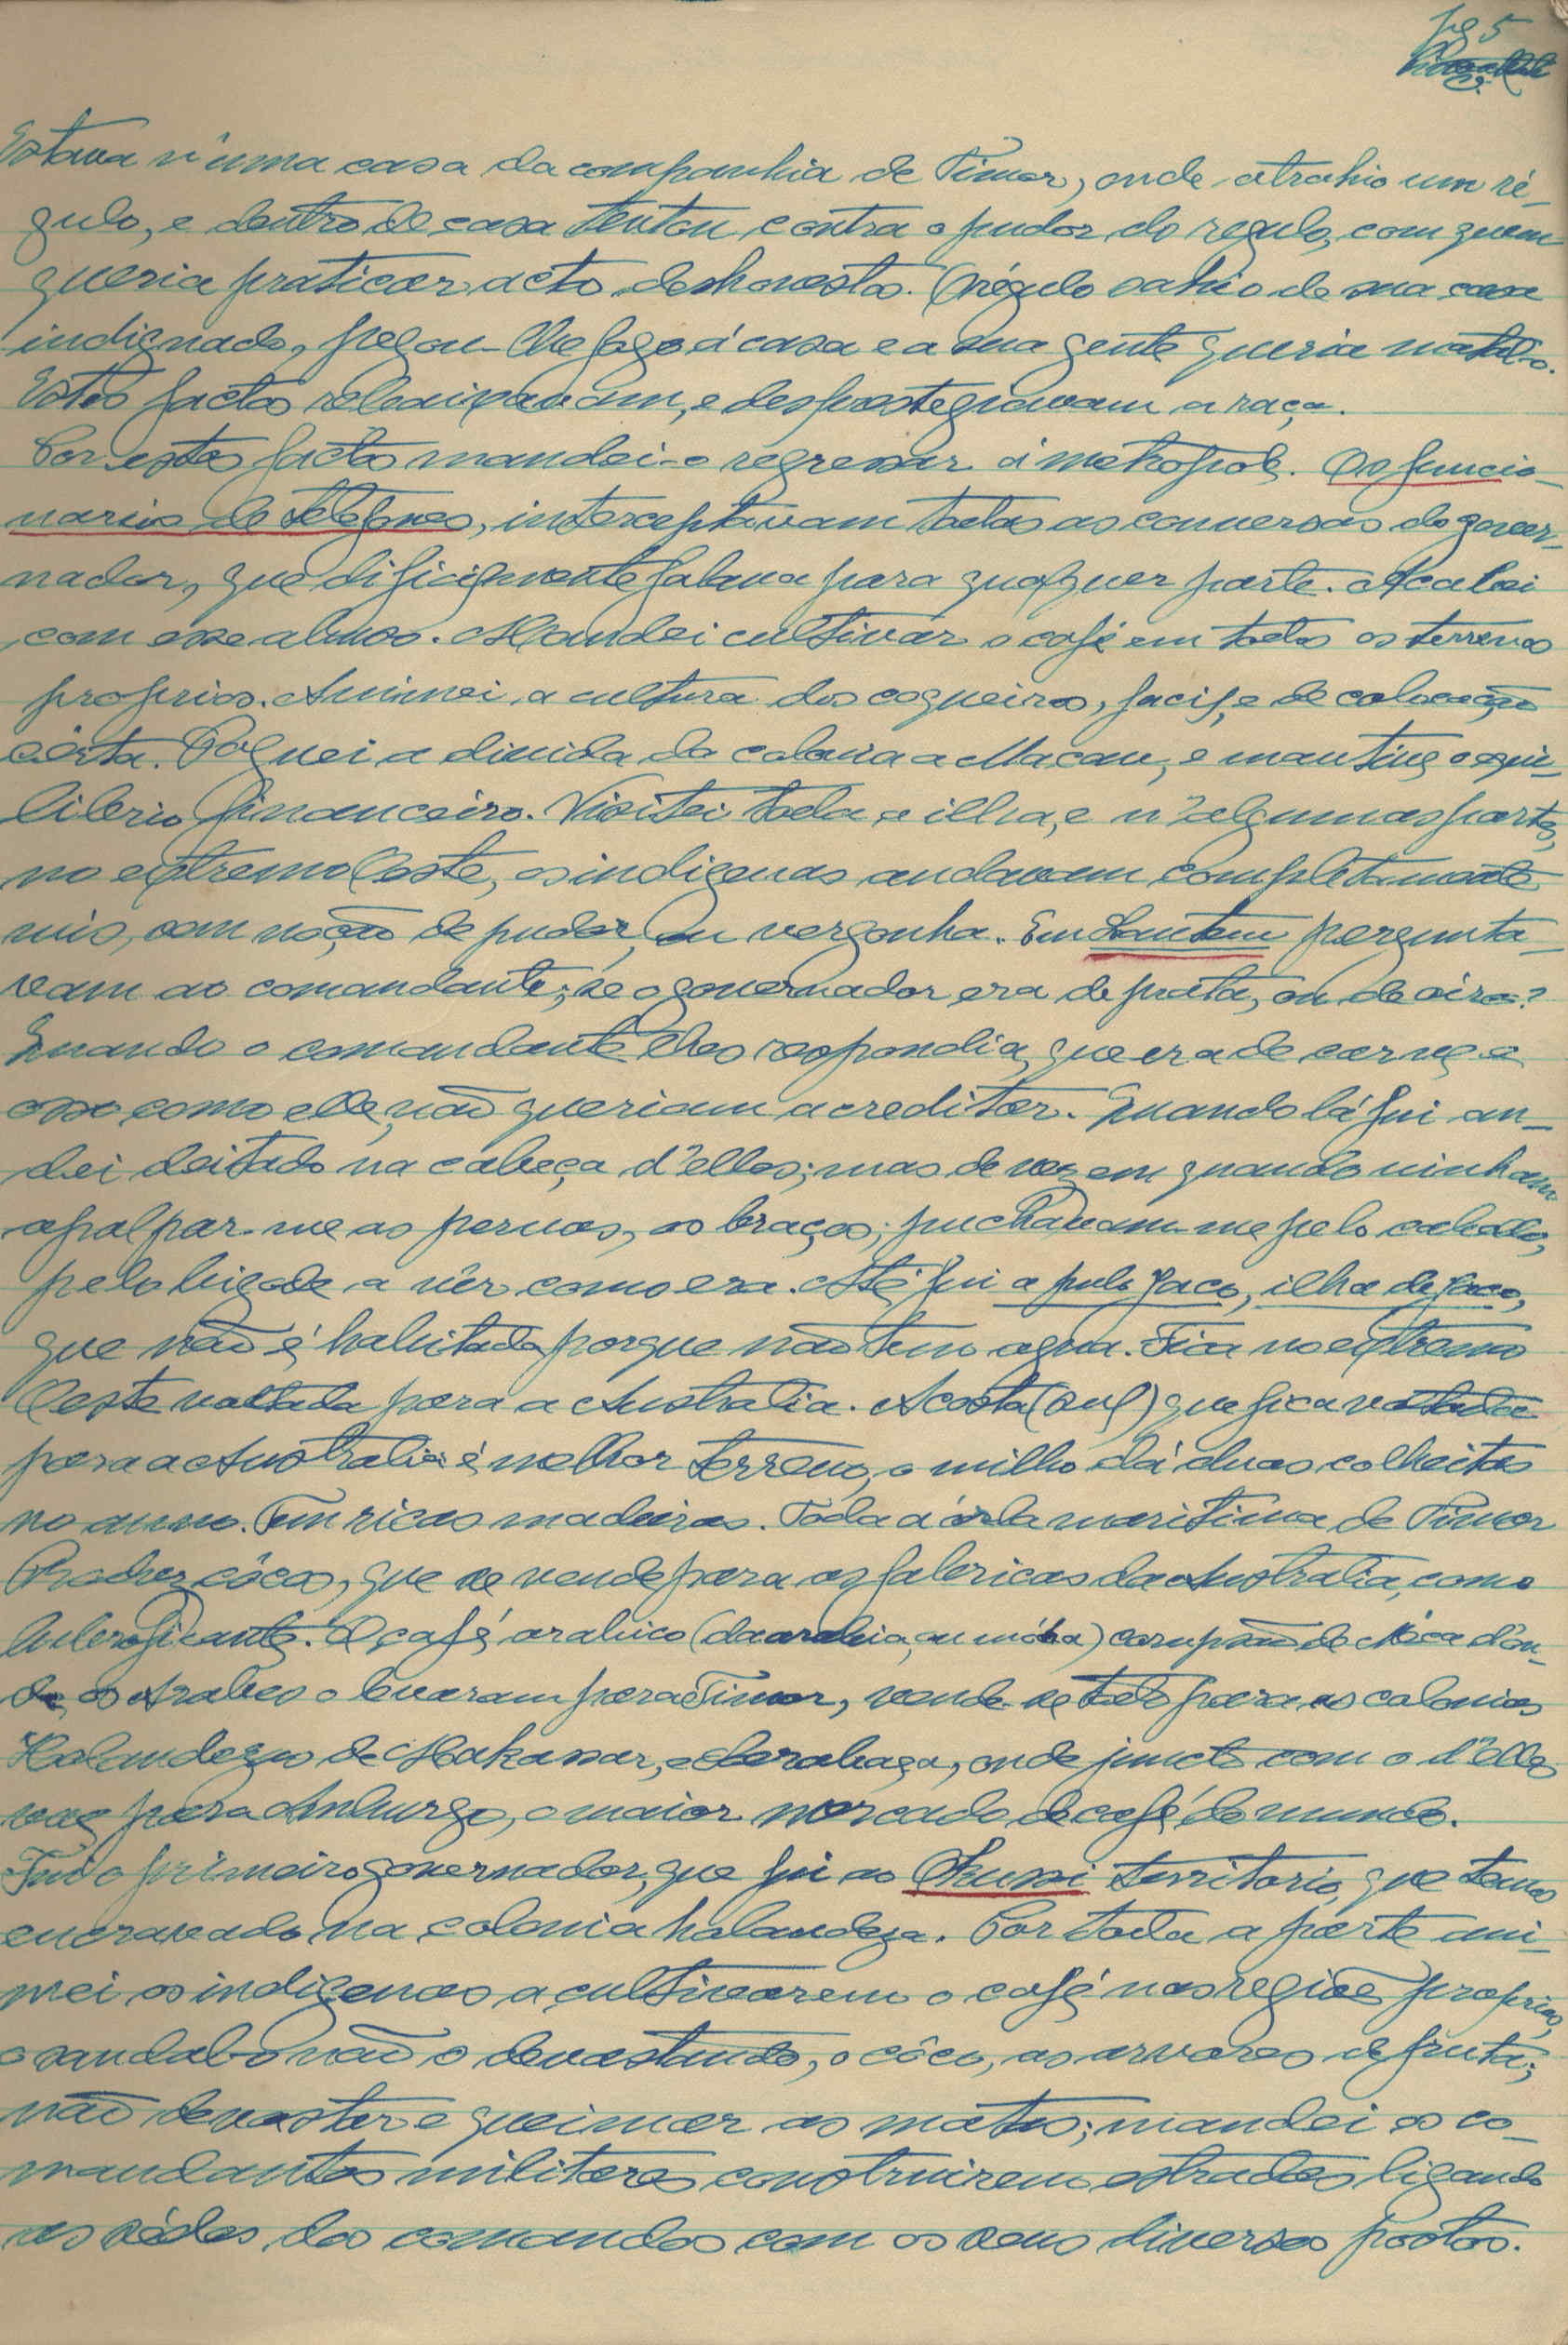 pg 5
Estava n'uma casa da companhia de Timor, onde atrahio um ré-
gulo, e dentro de casa tentou contra o pudor do regulo, com quem
queria praticar acto deshonesto. O régulo sahio de sua casa
indignado, pegou-lhe fogo á casa e a sua gente queria matal-o.
Estes factos rebaixavam, e desprestegiavam a raça.
Por estes factos mandei-o regressar á metropole. Os funcio-
narios de telefones, interceptavam todas as conversas do gover-
nador, que dificilmente falava para qualquer parte. Acabei
com esse abuso. Mandei cultivar o café em todos os terrenos
proprios. Animei a cultura dos coqueiros, facil, e de colocação
cérta. Paguei a divida da colonia a Macau, e mantive o equi-
librio financeiro. Visitei toda a ilha, e n'algumas partes,
no extremo Leste, os indigenas andavam completamente
nús, sem noção de pudor, ou vergonha. Em Lautem pergunta-
vam ao comandante; se o governador era de prata, ou de oiro?
Quando o comandante lhes respondia, que era de carne e
osso como elle, não queriam acreditar. Quando lá fui an-
dei deitado na cabeça d'elles; mas de vez em quando vinham
apalpar-me as pernas, os braços; puchavam-me pelo cabello,
pelo bigode a vêr como era. Até fui a pulo Jaco, ilha de Jaco,
que não é habitada porque não tem agua. Fica no extremo
Leste voltada para a Australia. A costa (sul) que fica voltada
para a Australia é melhor terreno, o milho dá duas colheitas
no anno. Tem ricas madeiras. Toda a órla maritima de Timor
Produz côcos, que se vende para as fabricas da Australia, como
lubrificante. O café arabico (da arabia, ou móka) corrupção de Méca d'on-
de os Arabes o levaram para Timor, vende-se todo para as colonias
Holandezas de Makassar, e Sorabaya, onde juncto com o d'elles
vae para Amburgo, o maior mercado de café do mundo.
Fui o primeiro governador, que fui ao Okussi territorio, que temos
encravado na colonia holandeza. Por toda a parte ani-
mei os indigenas a cultivarem o café nas regiões proprias,
o sandalo não o devastando, o côco, as arvores de fruta;
não devastar e queimar as matas; mandei os co-
mandantes militares construirem estradas ligando
as sédes dos comandos com os seus diversos postos.